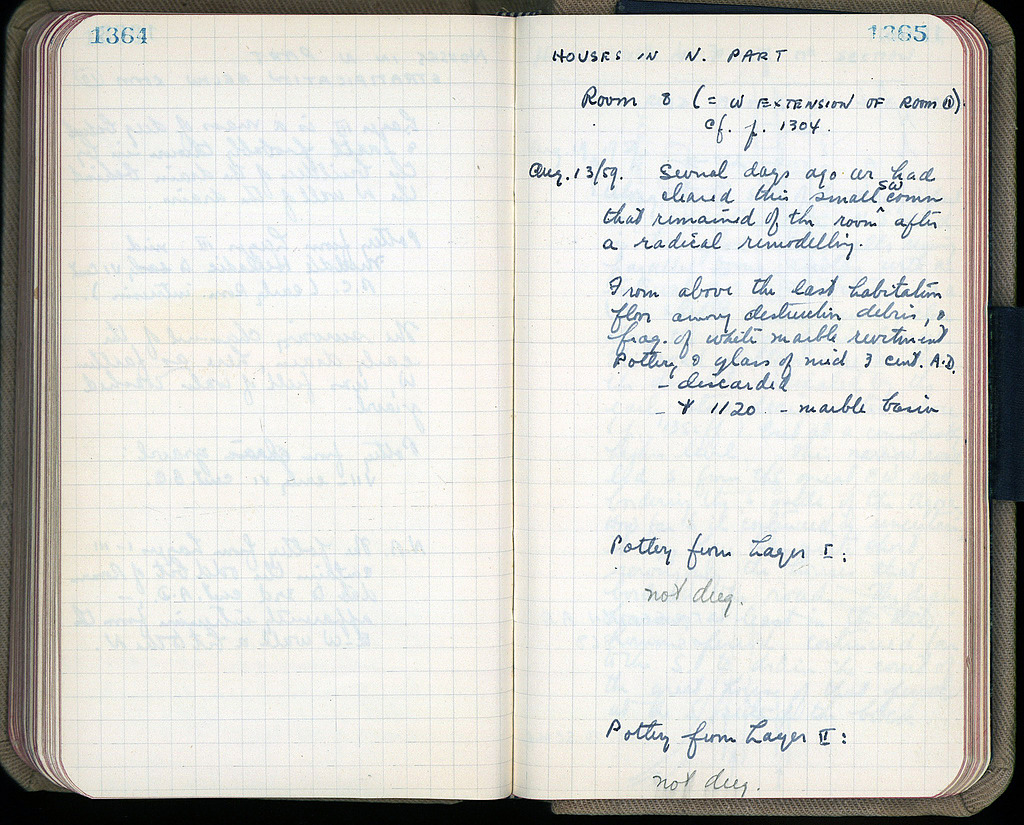 1364
1365
HOUSES IN N. PART
Room 8 (= W EXTENSION OF ROOM
cf. p. 1304.
Aug. 13/59. Several days ago we had
cleared this small SW corner
that remained of the room ^ after
a radical remodelling.
From above the last habitation
floor among destruction debris, a
frag. of white marble revetment
Pottery & glass of mid 3 cent. A.D.
- discarded
- * 1120 - marble basin
Pottery from Layer I:
not dug.
Pottery from Layer II:
not dug.